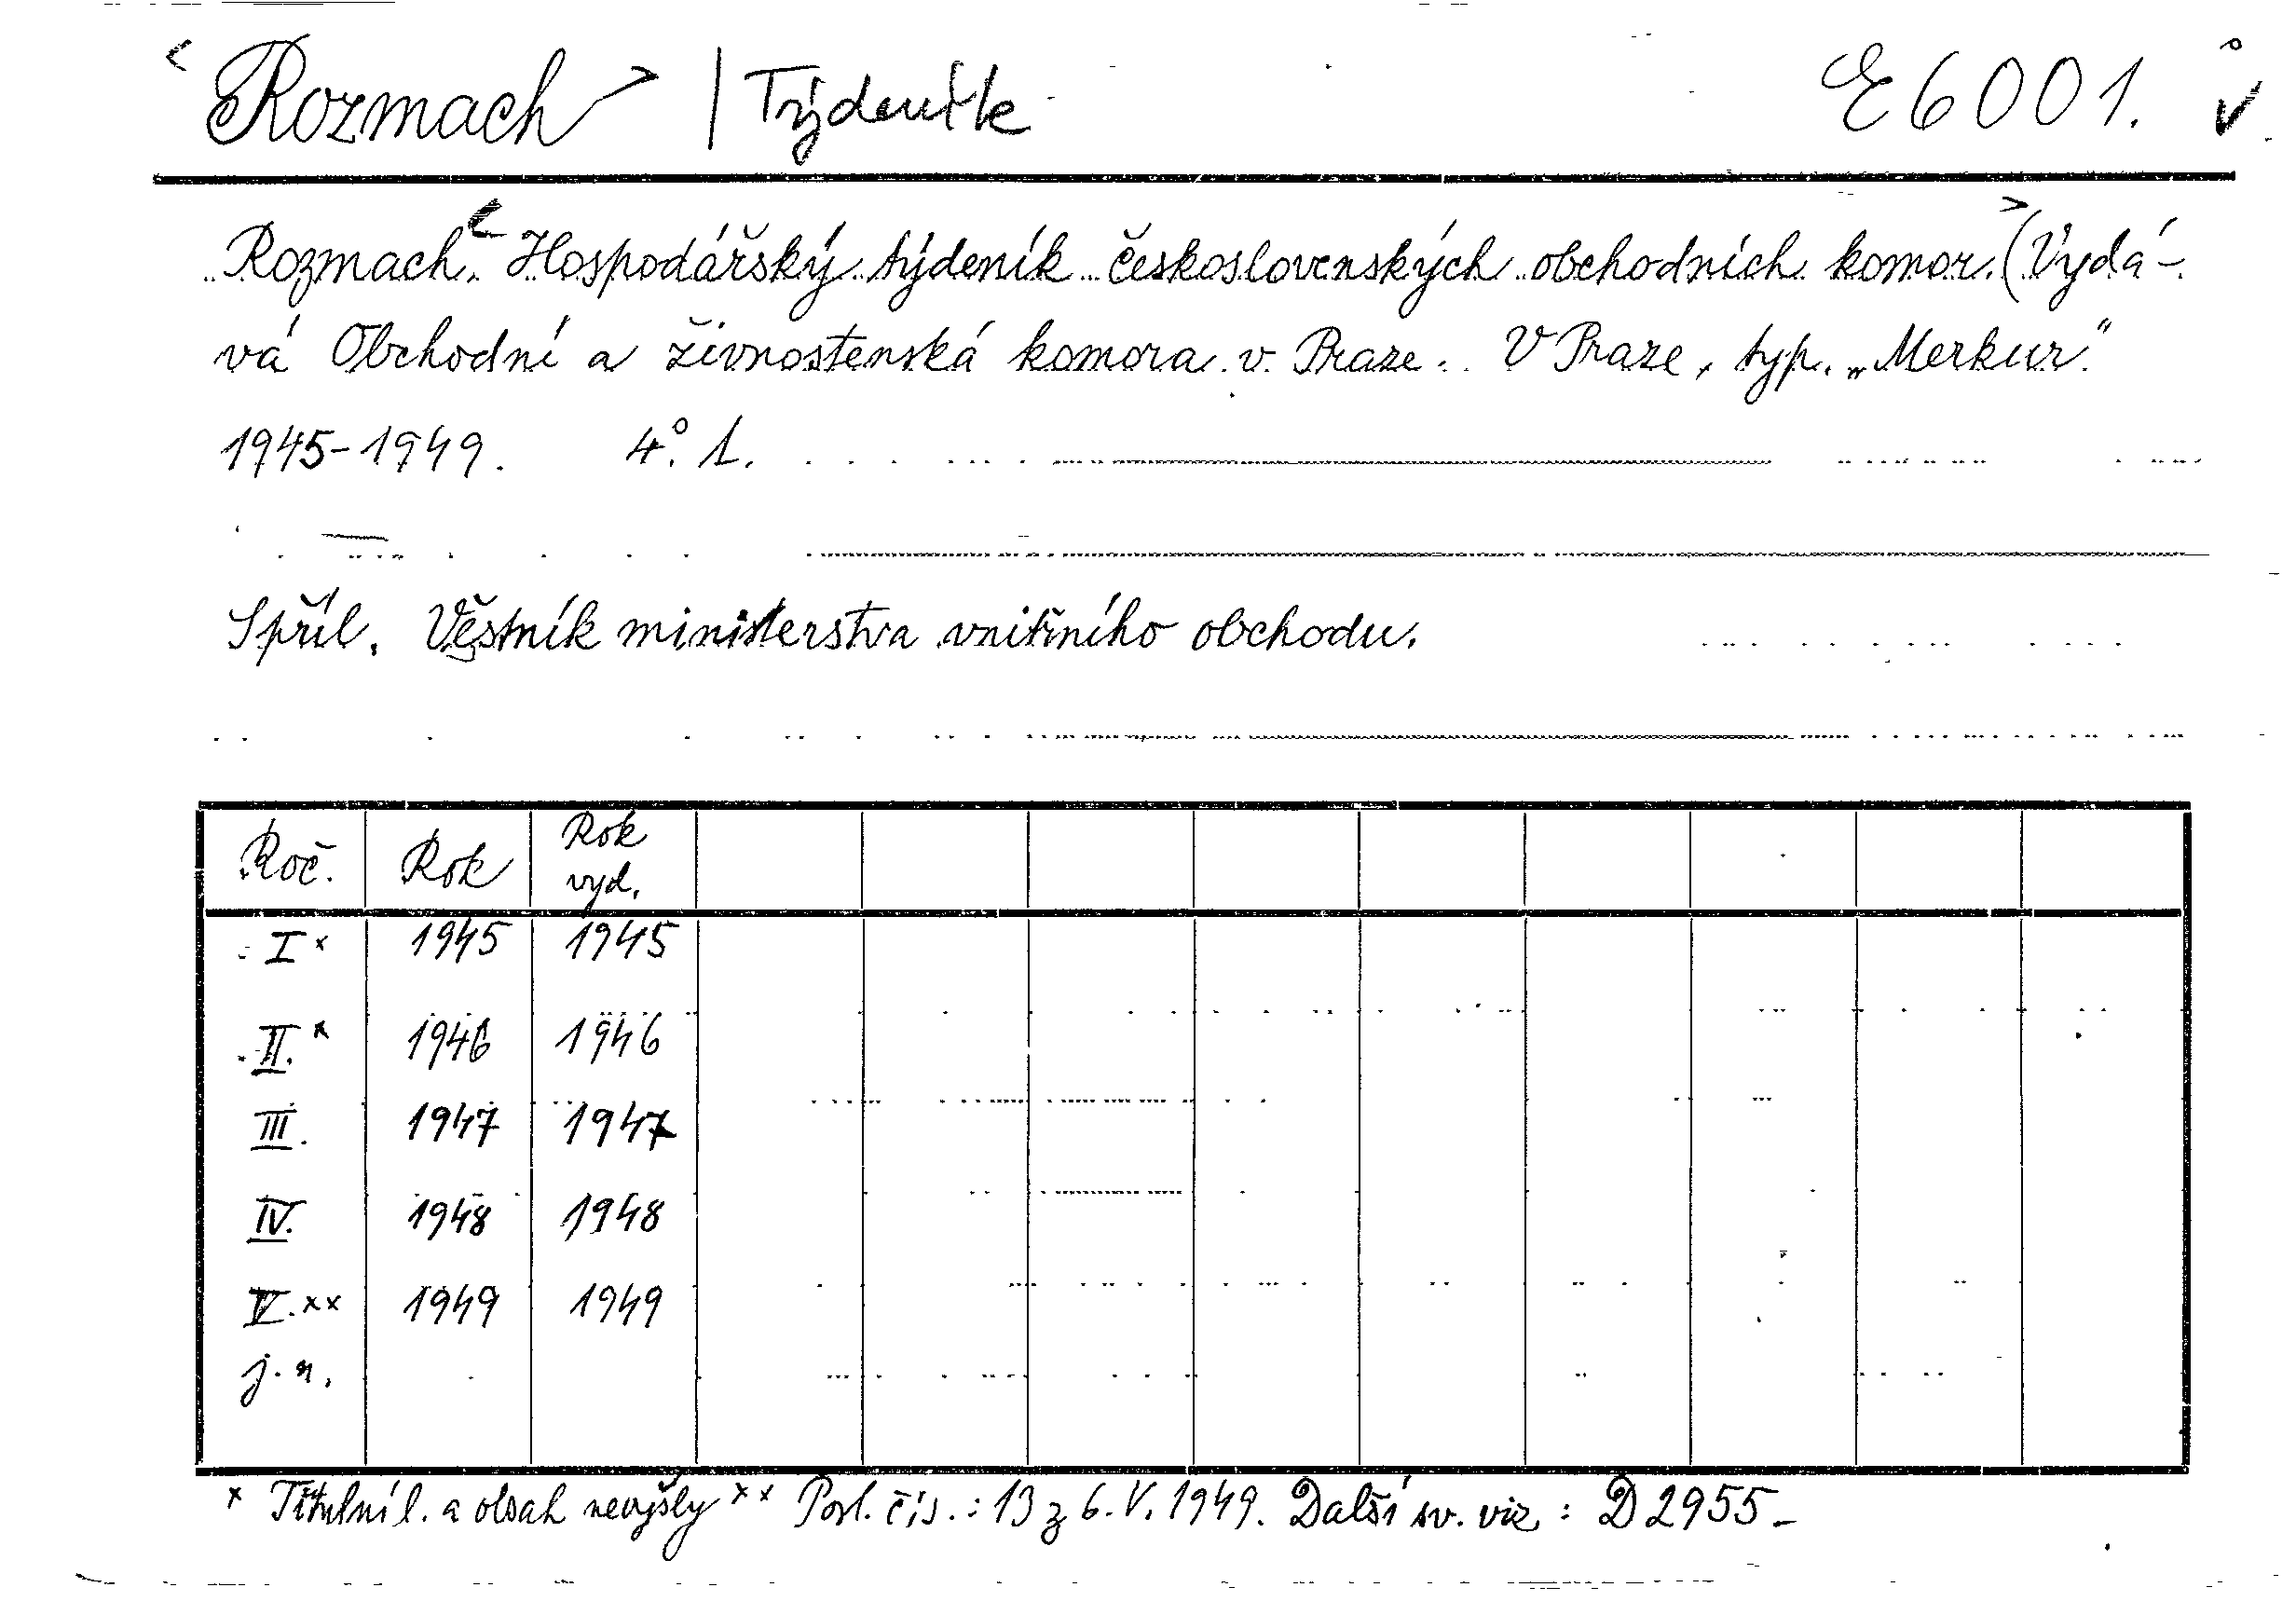 <Rozmach> | Týdeník E 6001. v
Rozmach. <Hospodářský týdeník československých obchodních komor.> (Vydá-
vá Obchodní a živnostenská komora v Praze. V Praze, typ. „Merkur."
1945-1949. 4° l.
S příl. Věstník ministerstva vnitřního obchodu.
Roč. Rok Rok vyd.
I x 1945 1945
II. x 1946 1946
III. 1947 1947
IV. 1948 1948
V. xx 1949 1949
j. n.
x Titulní l. a obsah nevyšly xx Posl. čís.: 13 z 6. V. 1949. Další sv. viz: D 2955-